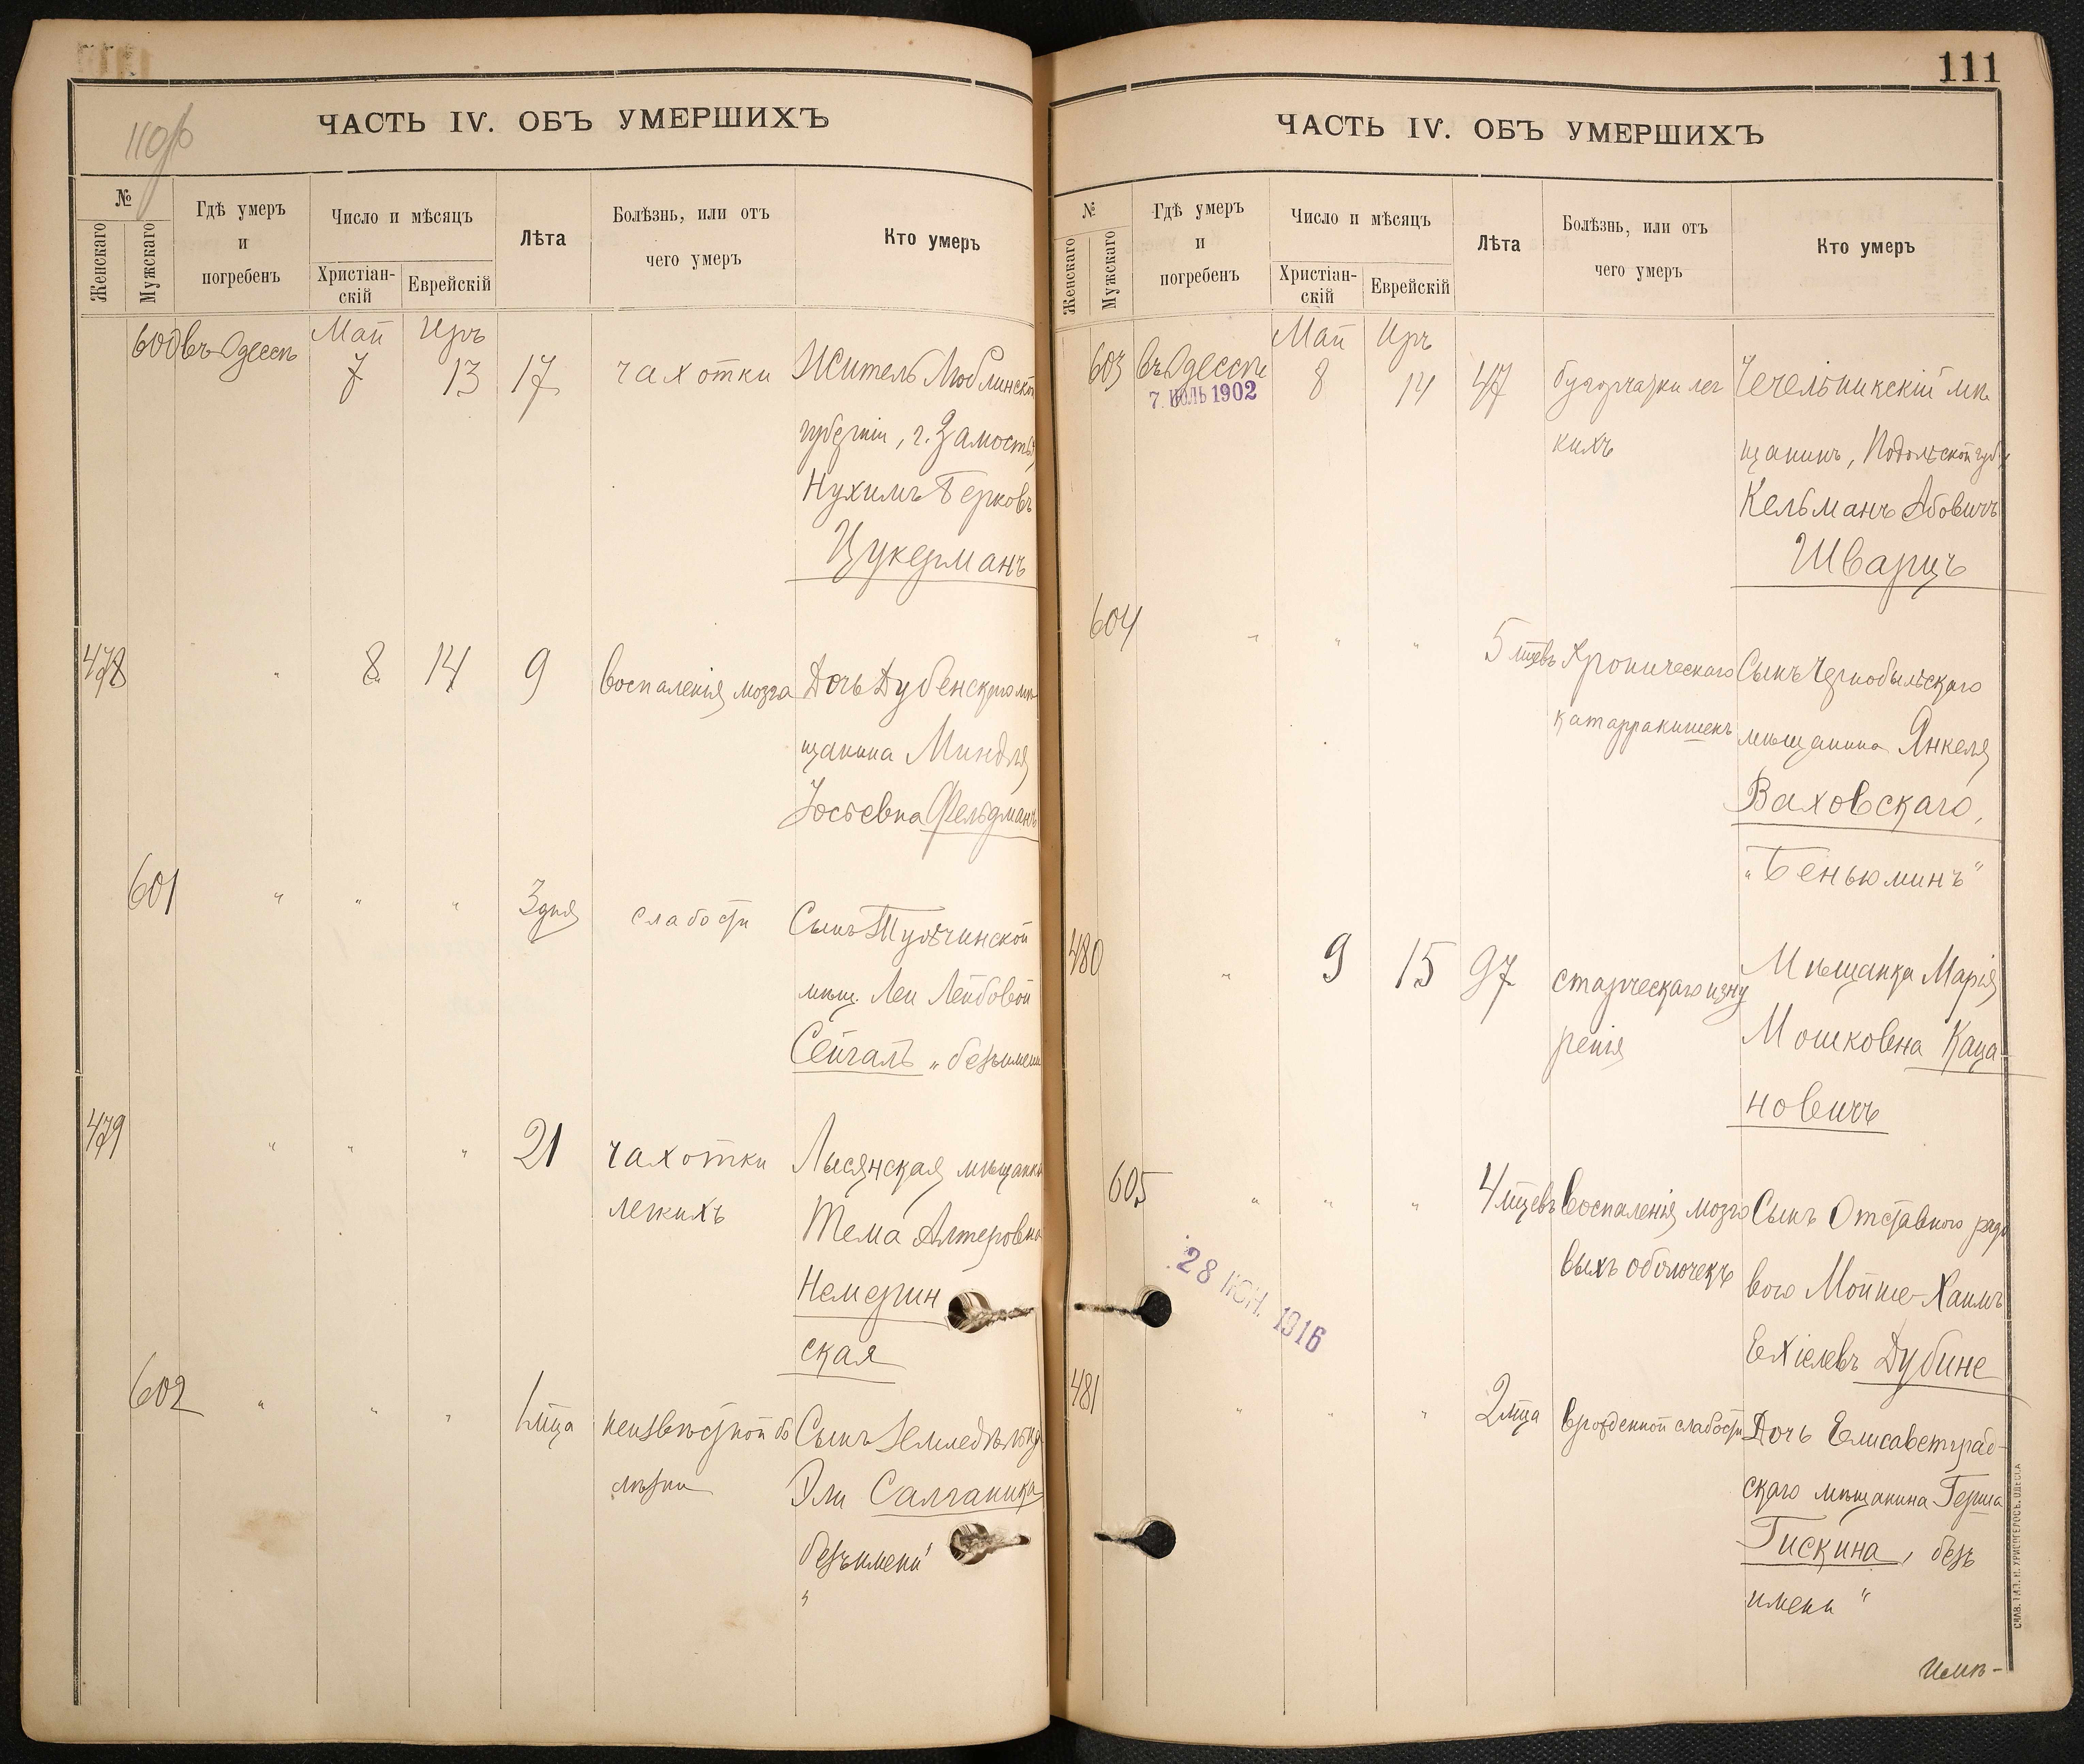 110/б
ЧАСТЬ IV. ОБЪ УМЕРШИХЪ
№
Женскаго
Мужскаго
Гдѣ умеръ
и
погребенъ
Число и мѣсяцъ
Христіан-
скій
Еврейскій
Лѣта
Болѣзнь, или отъ
чего умеръ
Кто умеръ
600 въ Одессѣ Май 7 Иръ 13 17 чахотки Житель Люблинской
губерніи, г. Замостья,
Нухимъ Берковъ
Цукерманъ
478 " 8 14 9 воспаленія мозга Дочь Дубенскаго мѣ
щанина Миндля
Іосьевна Фельдманъ
601 " " " 3 дня слабости Сынъ Тульчинской
мѣщ. Леи Лейбовой
Сейгалъ „безъимени
479 " " " 21 чахотки Лысянская мѣщанка
легкихъ
Тема Алтеровна
Немерин
ская
602 " " " 1 мѣца неизвѣстной бо Сынъ Земледѣльца
лѣзни
Эли Салганика
безъимени"
111
ЧАСТЬ IV. ОБЪ УМЕРШИХЪ
№
Женскаго
Мужскаго
Гдѣ умеръ
и
погребенъ
Число и мѣсяцъ
Христіан-
скій
Еврейскій
Лѣта
Болѣзнь, или отъ
чего умеръ
Кто умеръ
603 въ Одессѣ Май 8 Иръ 14 47 бугорчатки лег Чечельникскій мѣ
7. ИЮЛЬ 1902
кихъ
щанинъ, Подольской губ.,
Кельманъ Абовичъ
Шварцъ
604 " " " 5 мцевъ Хроническаго Сынъ Чернобыльскаго
катарра кишекъ
мѣщанина Янкеля
Ваховскаго,
„Беньюминъ"
480 " 9 15 97 старческаго изну Мѣщанка Марія
ренія
Мошковена Каца-
новичъ
605 " " " 4 мцевъ воспаленія мозго Сынъ Отставного рядо
выхъ оболочекъ
28 ІЮН. 1916
вого Мойше-Хаимъ
Ехіелевъ Дубине
481 " " " 2 мца врожденной слабости Дочь Елисаветград-
скаго мѣщанина Герша
Гискина, безъ
имени"
Имѣ-
СЛАВ. ТИП. Н. ХРИСОГЕЛОСЪ. ОДЕССА